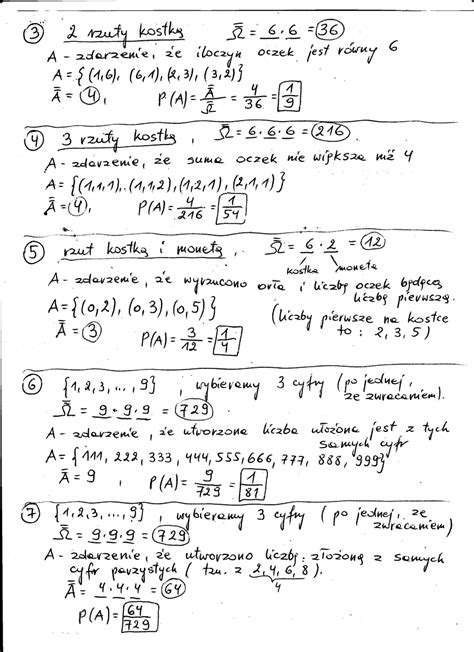 ③ 2 rzuty kostką Ω̿ = 6 · 6 = 36
A - zdarzenie, że iloczyn oczek jest równy 6
A = { (1,6), (6,1), (2,3), (3,2) }
A̿ = 4, P(A) = A̿/Ω̿ = 4/36 = 1/9
④ 3 rzuty kostką, Ω̿ = 6 · 6 · 6 = 216
A - zdarzenie, że suma oczek nie większa niż 4
A = {(1,1,1), (1,1,2), (1,2,1), (2,1,1)}
A̿ = 4, P(A) = 4/216 = 1/54
⑤ rzut kostką i monetą, Ω̿ = 6 · 2 = 12
kostka moneta
A - zdarzenie, że wyrzucono orła i liczbę oczek będącą
liczbą pierwszą.
A = {(0,2), (0,3), (0,5)} (liczby pierwsze na kostce
A̿ = 3 P(A) = 3/12 = 1/4 to: 2, 3, 5)
⑥ {1, 2, 3, ..., 9}, wybieramy 3 cyfry (po jednej,
Ω̿ = 9 · 9 · 9 = 729 ze zwracaniem).
A - zdarzenie, że utworzona liczba ułożona jest z tych
samych cyfr
A = { 111, 222, 333, 444, 555, 666, 777, 888, 999}
A̿ = 9, P(A) = 9/729 = 1/81
⑦ {1, 2, 3, ..., 9}, wybieramy 3 cyfry (po jednej, ze
Ω̿ = 9 · 9 · 9 = 729 zwracaniem)
A - zdarzenie, że utworzono liczbę złożoną z samych
cyfr parzystych (tzn. z 2, 4, 6, 8).
4
A̿ = 4 · 4 · 4 = 64
P(A) = 64/729